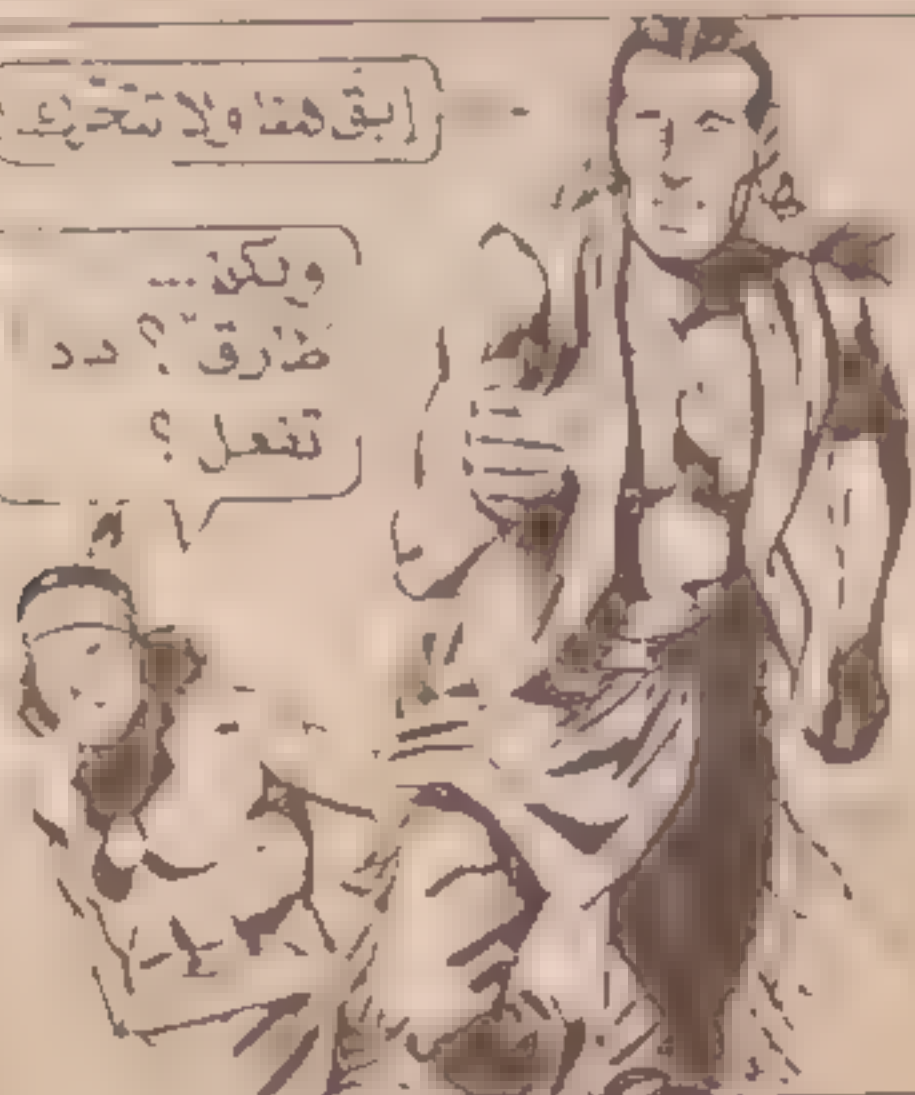 ابق هنا ولا تتحرك
ولكن ...
طرق ؟
تفعل ؟